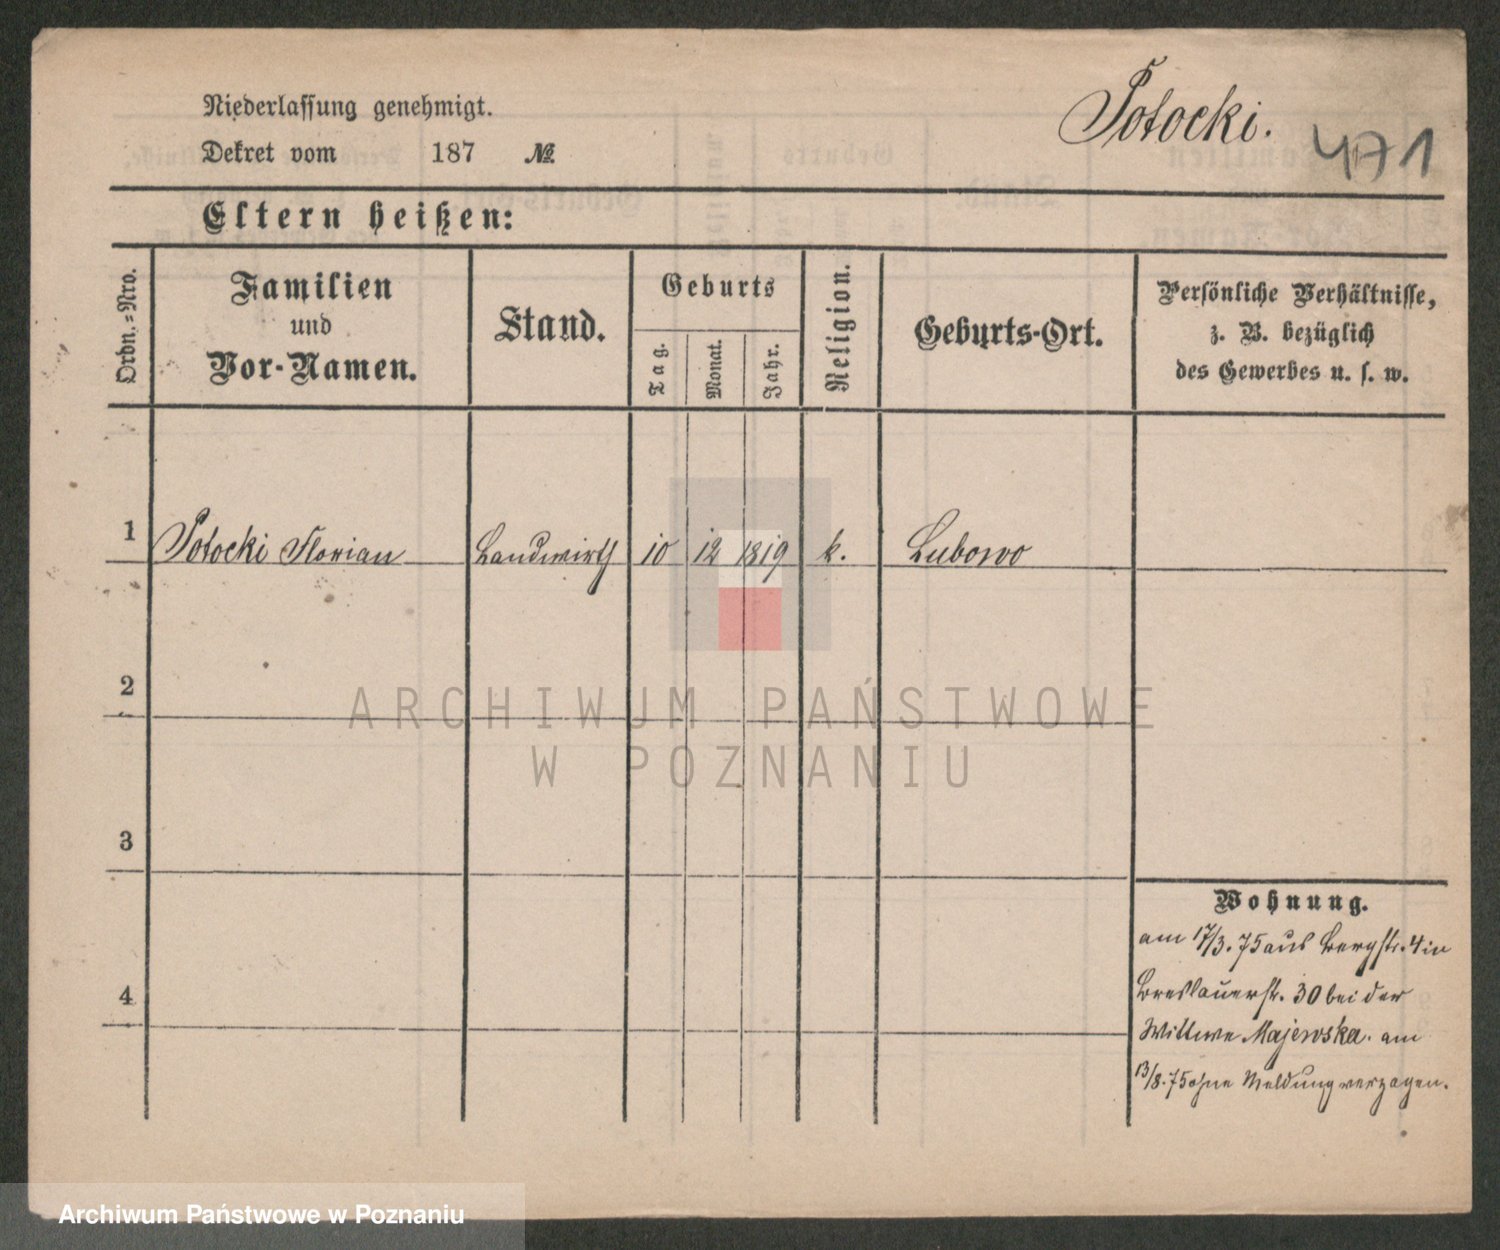 Niederlassung genehmigt.
Dekret vom 187 №
Potocki. 471
Eltern heißen:
Ordn.=Nro.
Familien
und
Vor-Namen.
Stand.
Geburts
Tag.
Monat.
Jahr.
Religion.
Geburts-Ort.
Persönliche Verhältnisse,
z. B. bezüglich
des Gewerbes u. s. w.
1 Potocki Florian Landwirth 10 12 1819 k. Lubowo
2
3
4
Wohnung.
am 17/3. 75 aus Bergstr. 4 in
Breslauerstr. 30 bei der
Wittwe Majewska. am
13/8. 75 ohne Meldung verzogen.
ARCHIWUM PAŃSTWOWE
W POZNANIU
Archiwum Państwowe w Poznaniu